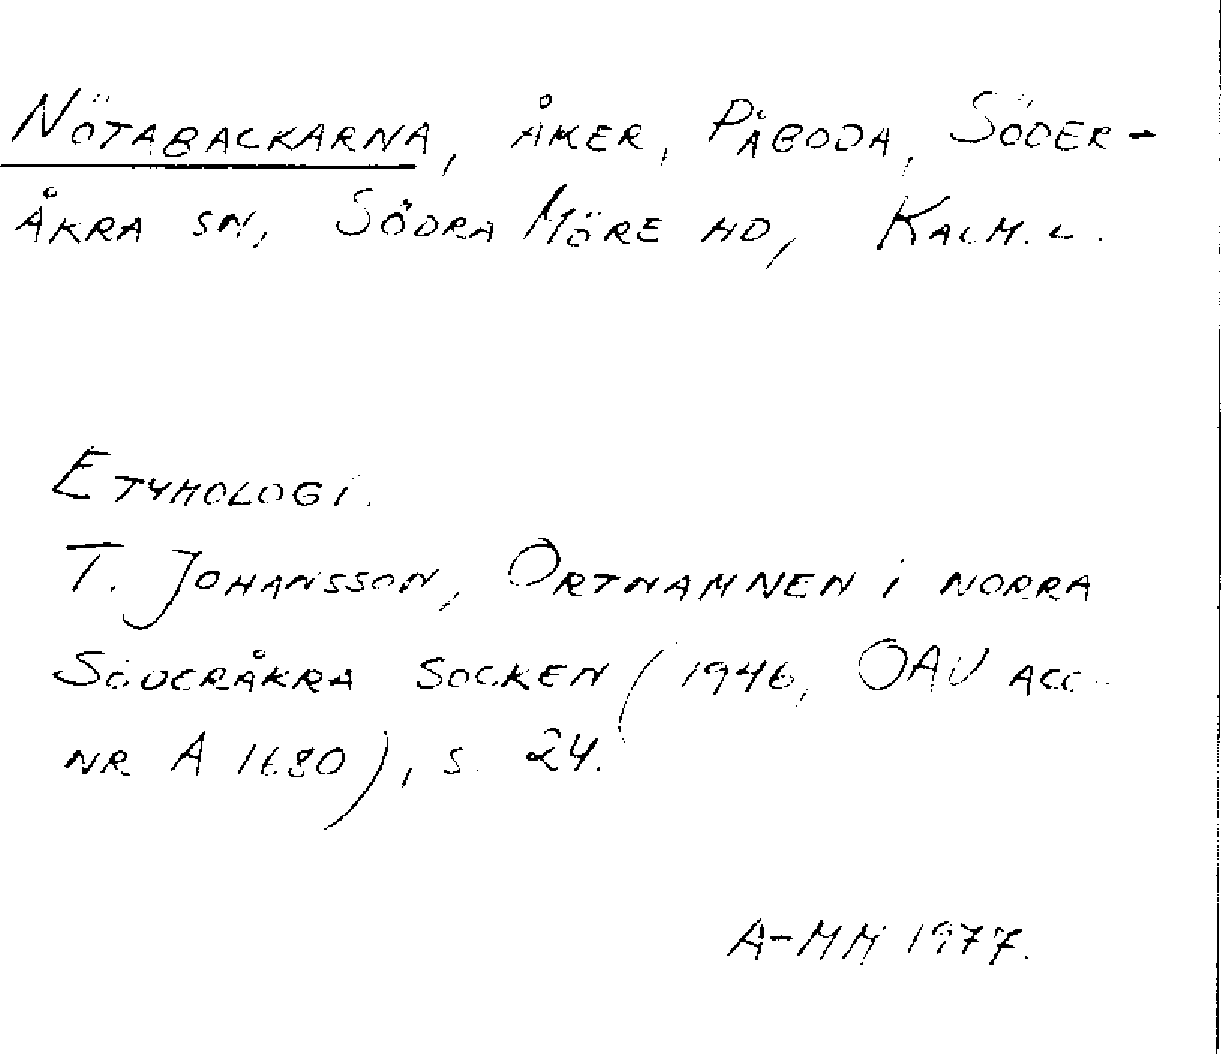 NÖTABACKARNA, ÅKER, PÅBODA, SÖDER-
ÅKRA SN, SÖDRA MÖRE HD, KALM. L.
ETYMOLOGI.
T. JOHANSSON, ORTNAMNEN I NORRA
SÖDERÅKRA SOCKEN (1946, OAU ACC.
NR A 1680), S. 24.
A-MM 1977.